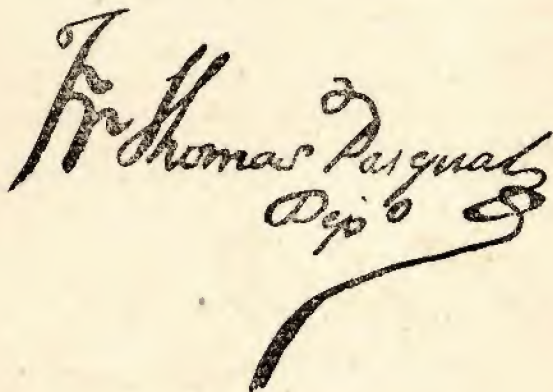 Fr Thomas Pasqual
Dipº